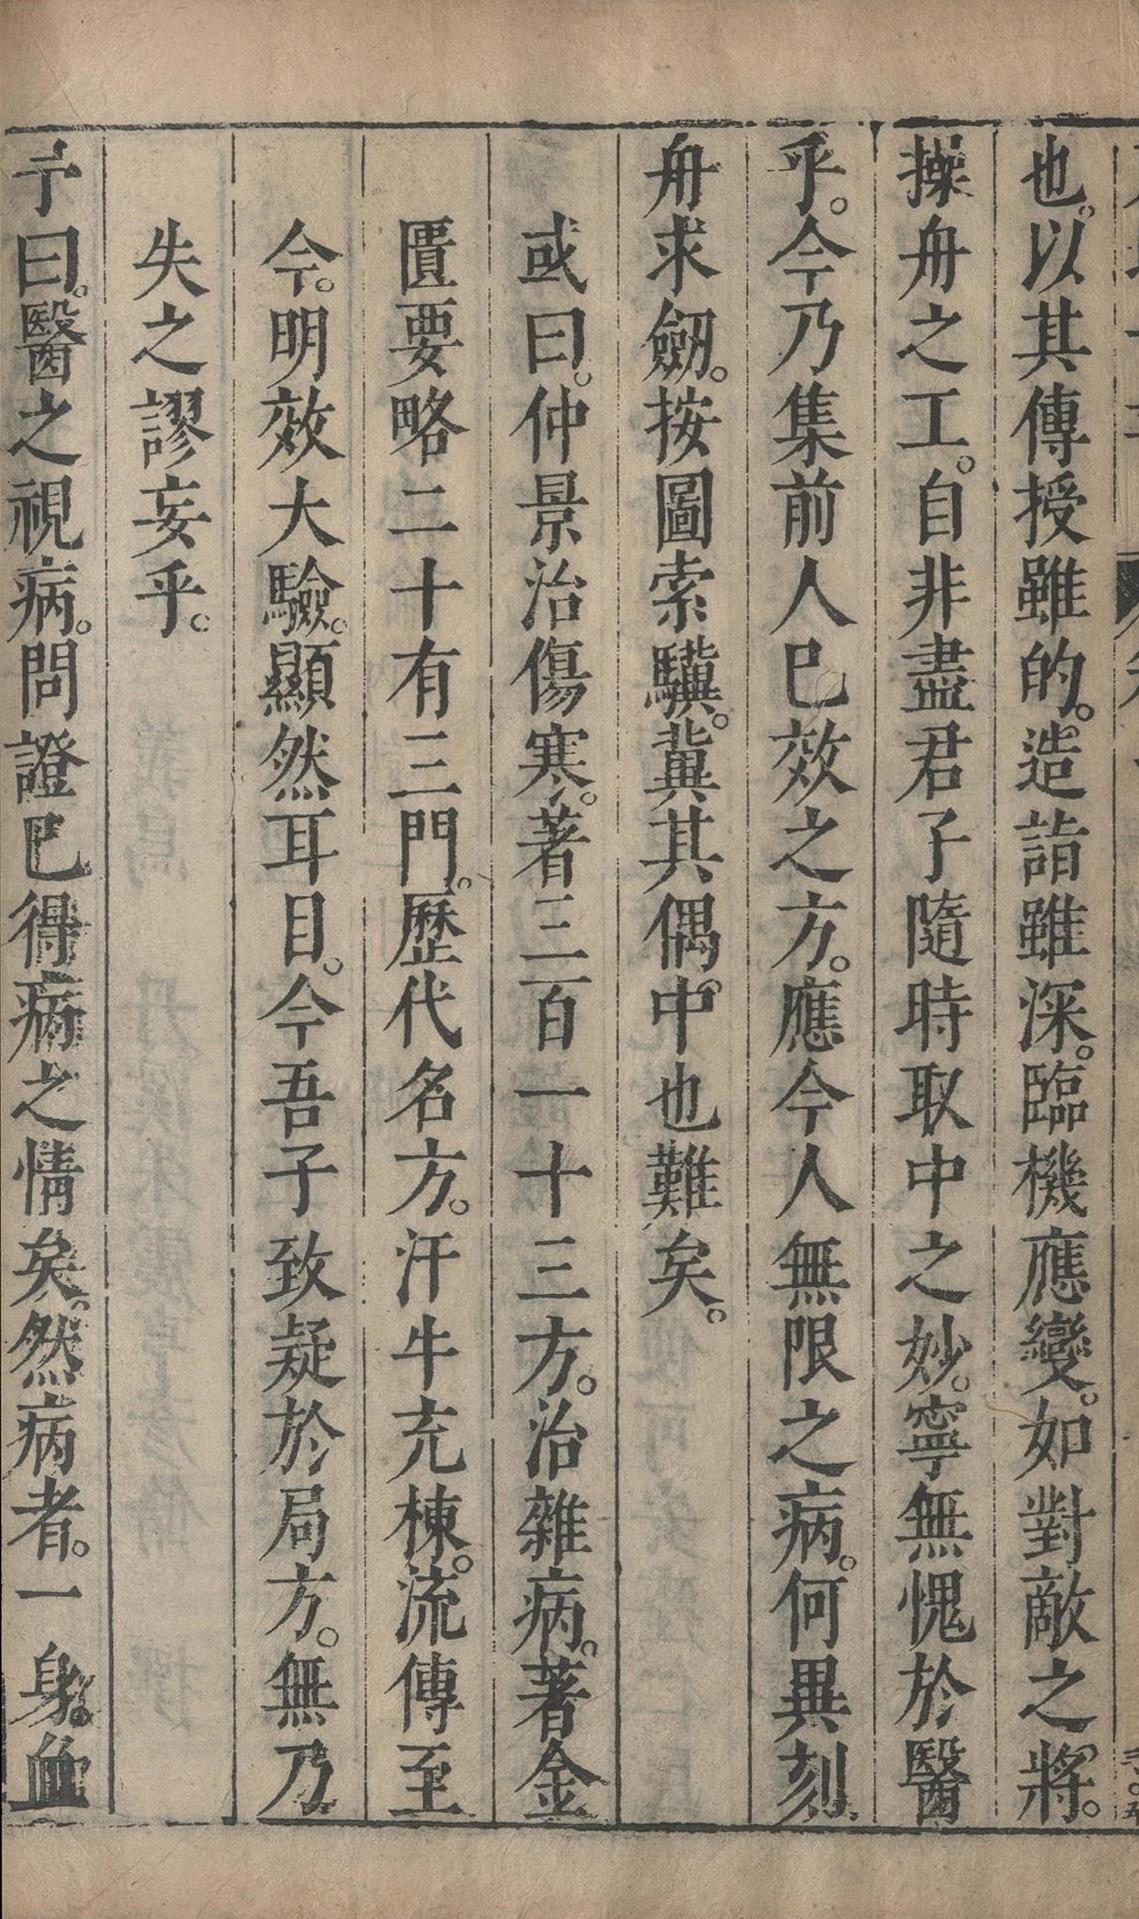 也。以其傳授雖的。造詣雖深。臨機應變。如對敵之將。
操舟之工。自非盡君子隨時取中之妙。寧無愧於醫
乎。今乃集前人已效之方。應今人無限之病。何異刻
舟求劒。按圖索驥。冀其偶中也難矣。
或曰。仲景治傷寒。著三百一十三方。治雜病。著金
匱要略二十有三門。歷代名方。汗牛充棟。流傳至
今。明效大驗。顯然耳目。今吾子致疑於局方。無乃
失之謬妄乎。
予曰。醫之視病。問證已得病之情矣。然病者。一身。血